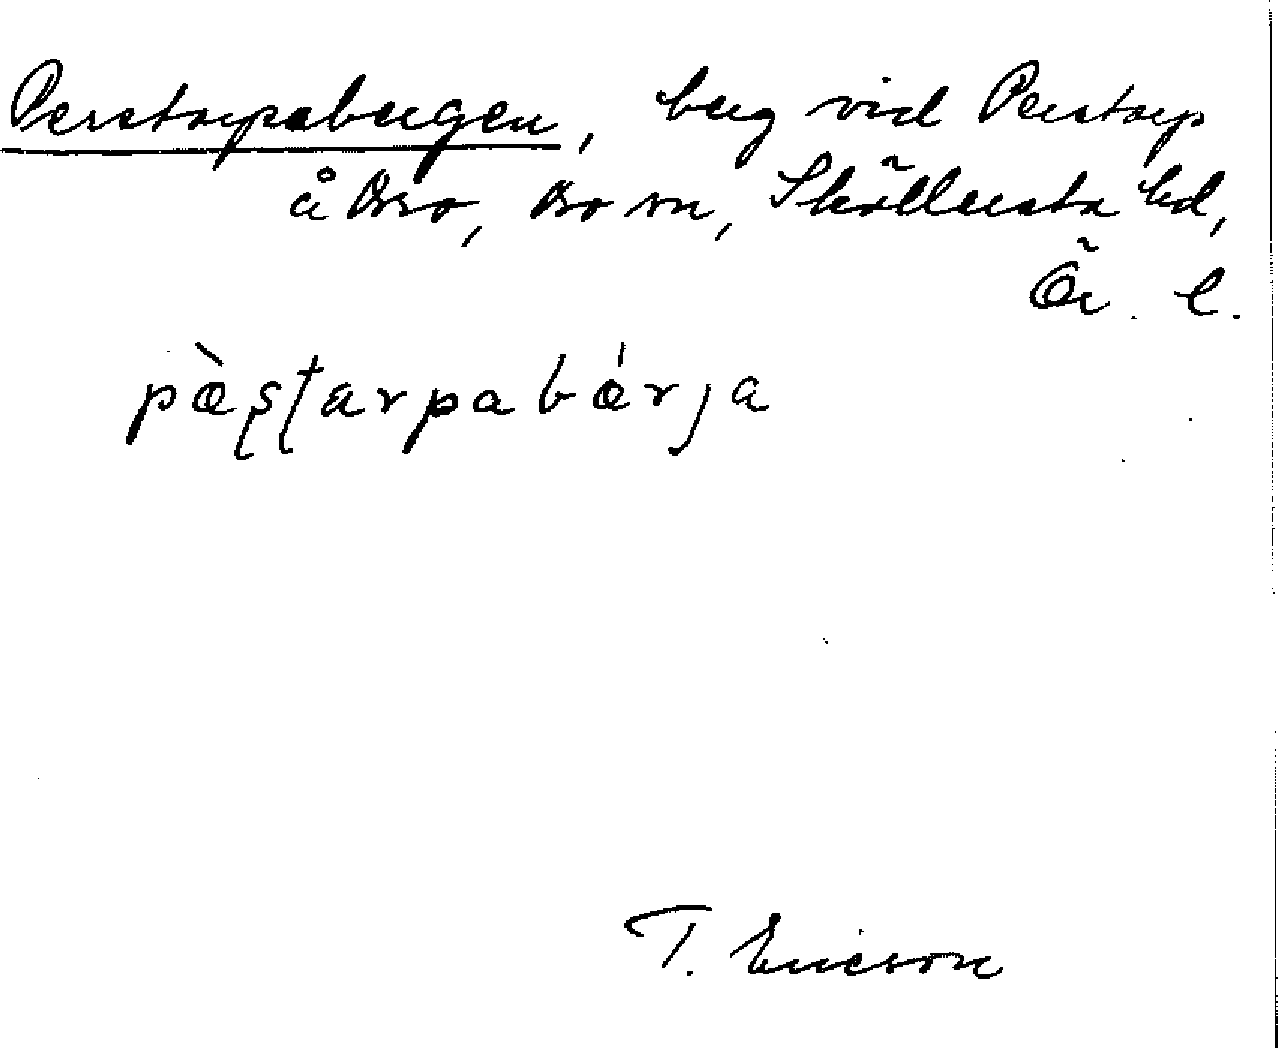 Perstorpabergen, berg vid Perstorp
å Asso, Asso sn, Sköllersta hd,
Ör. l.
pæ̀ʂʈarpabǽrja
T. Ericson